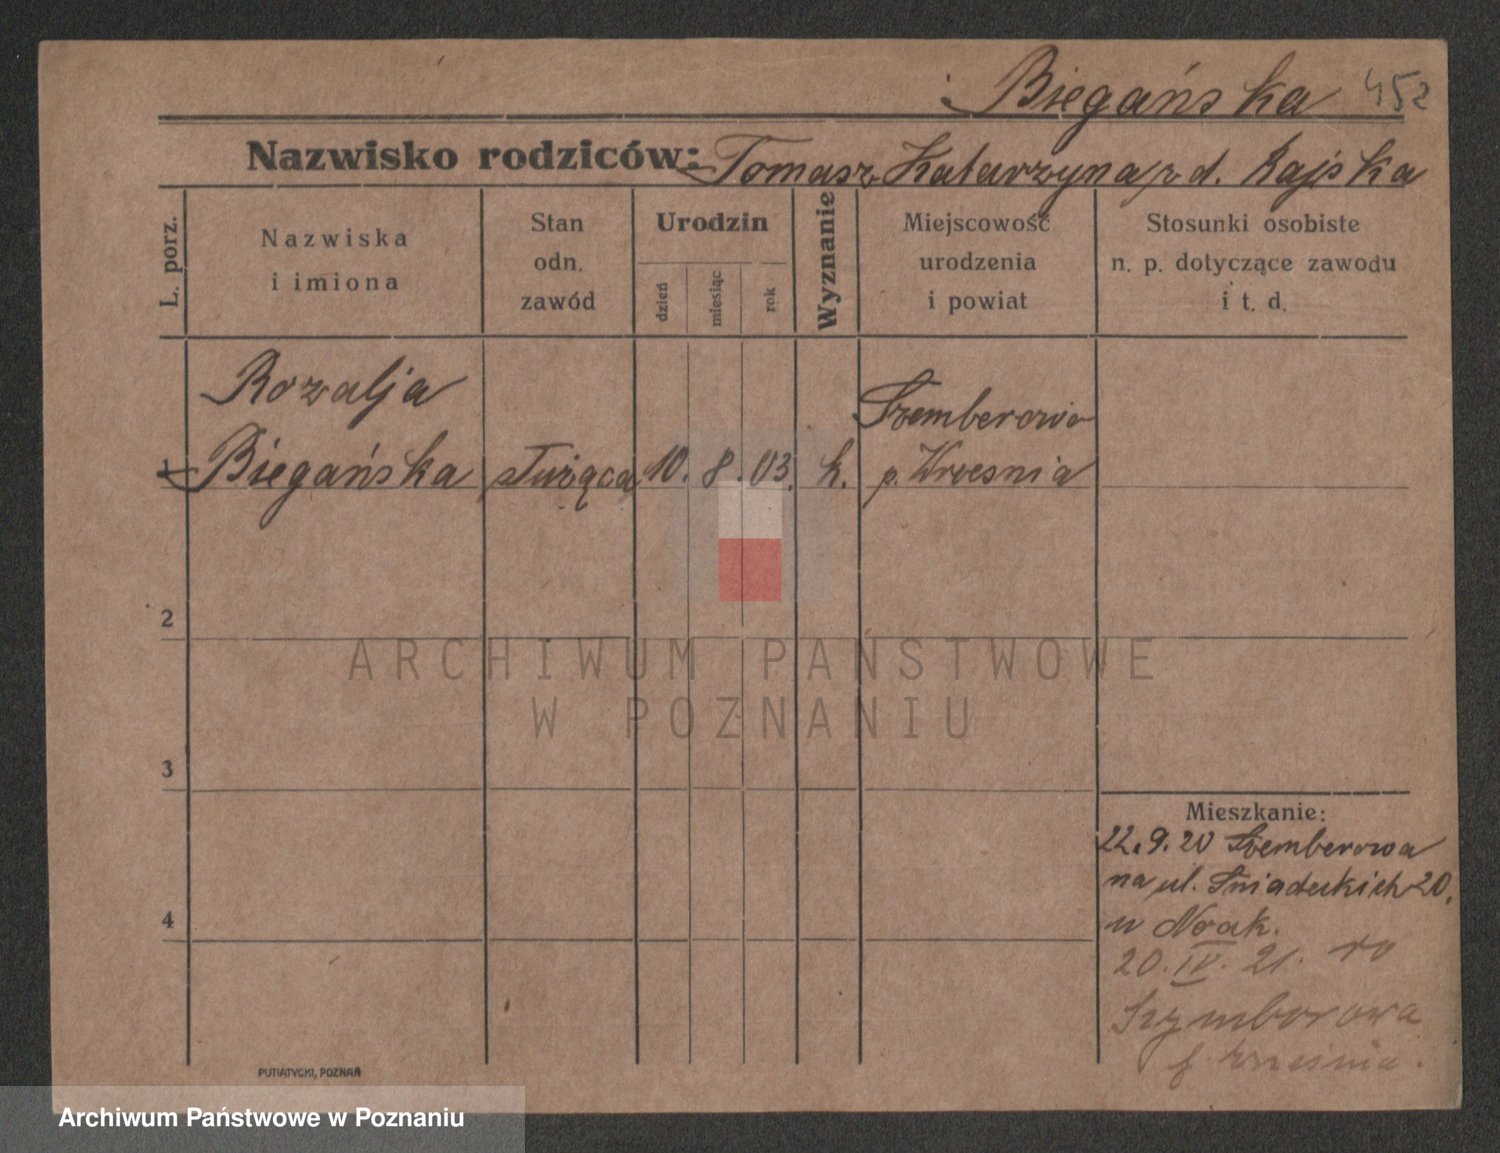 Biegańska 452
Nazwisko rodziców: Tomasz, Katarzyna z d. Rajska
L. porz.
Nazwiska
i imiona
Stan
odn.
zawód
Urodzin
dzień
miesiąc
rok
Wyznanie
Miejscowość
urodzenia
i powiat
Stosunki osobiste
n. p. dotyczące zawodu
i t. d.
Rozalja
Biegańska służąca 10. 8. 03. k.
Szemberowo
p. Wrzesnia
2
3
4
Mieszkanie:
22.9.20 Szemberowa
na ul. Śniadeckich 20.
u Noak.
20. IV. 21. do
Szymborowa
p. Września.
PUTIATYCKI, POZNAŃ
ARCHIWUM PAŃSTWOWE
W POZNANIU
Archiwum Państwowe w Poznaniu